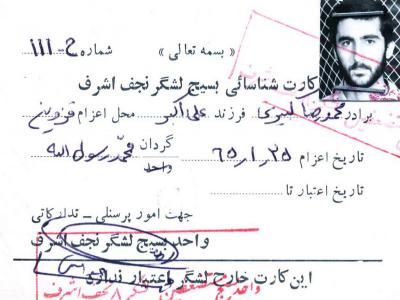 « بسمه تعالی »
شماره ج-۱۱۱
کارت شناسائی بسیج لشگر نجف اشرف
برادر محمدرضا کبیری فرزند علی اکبر محل اعزام قزوین
تاریخ اعزام ۶۵/۱/۲۵ گردان محمد رسول الله
واحد
تاریخ اعتبار تا
جهت امور پرسنلی ـ تدارکاتی
واحد بسیج لشگر نجف اشرف
این کارت خارج لشگر اعتبار ندارد